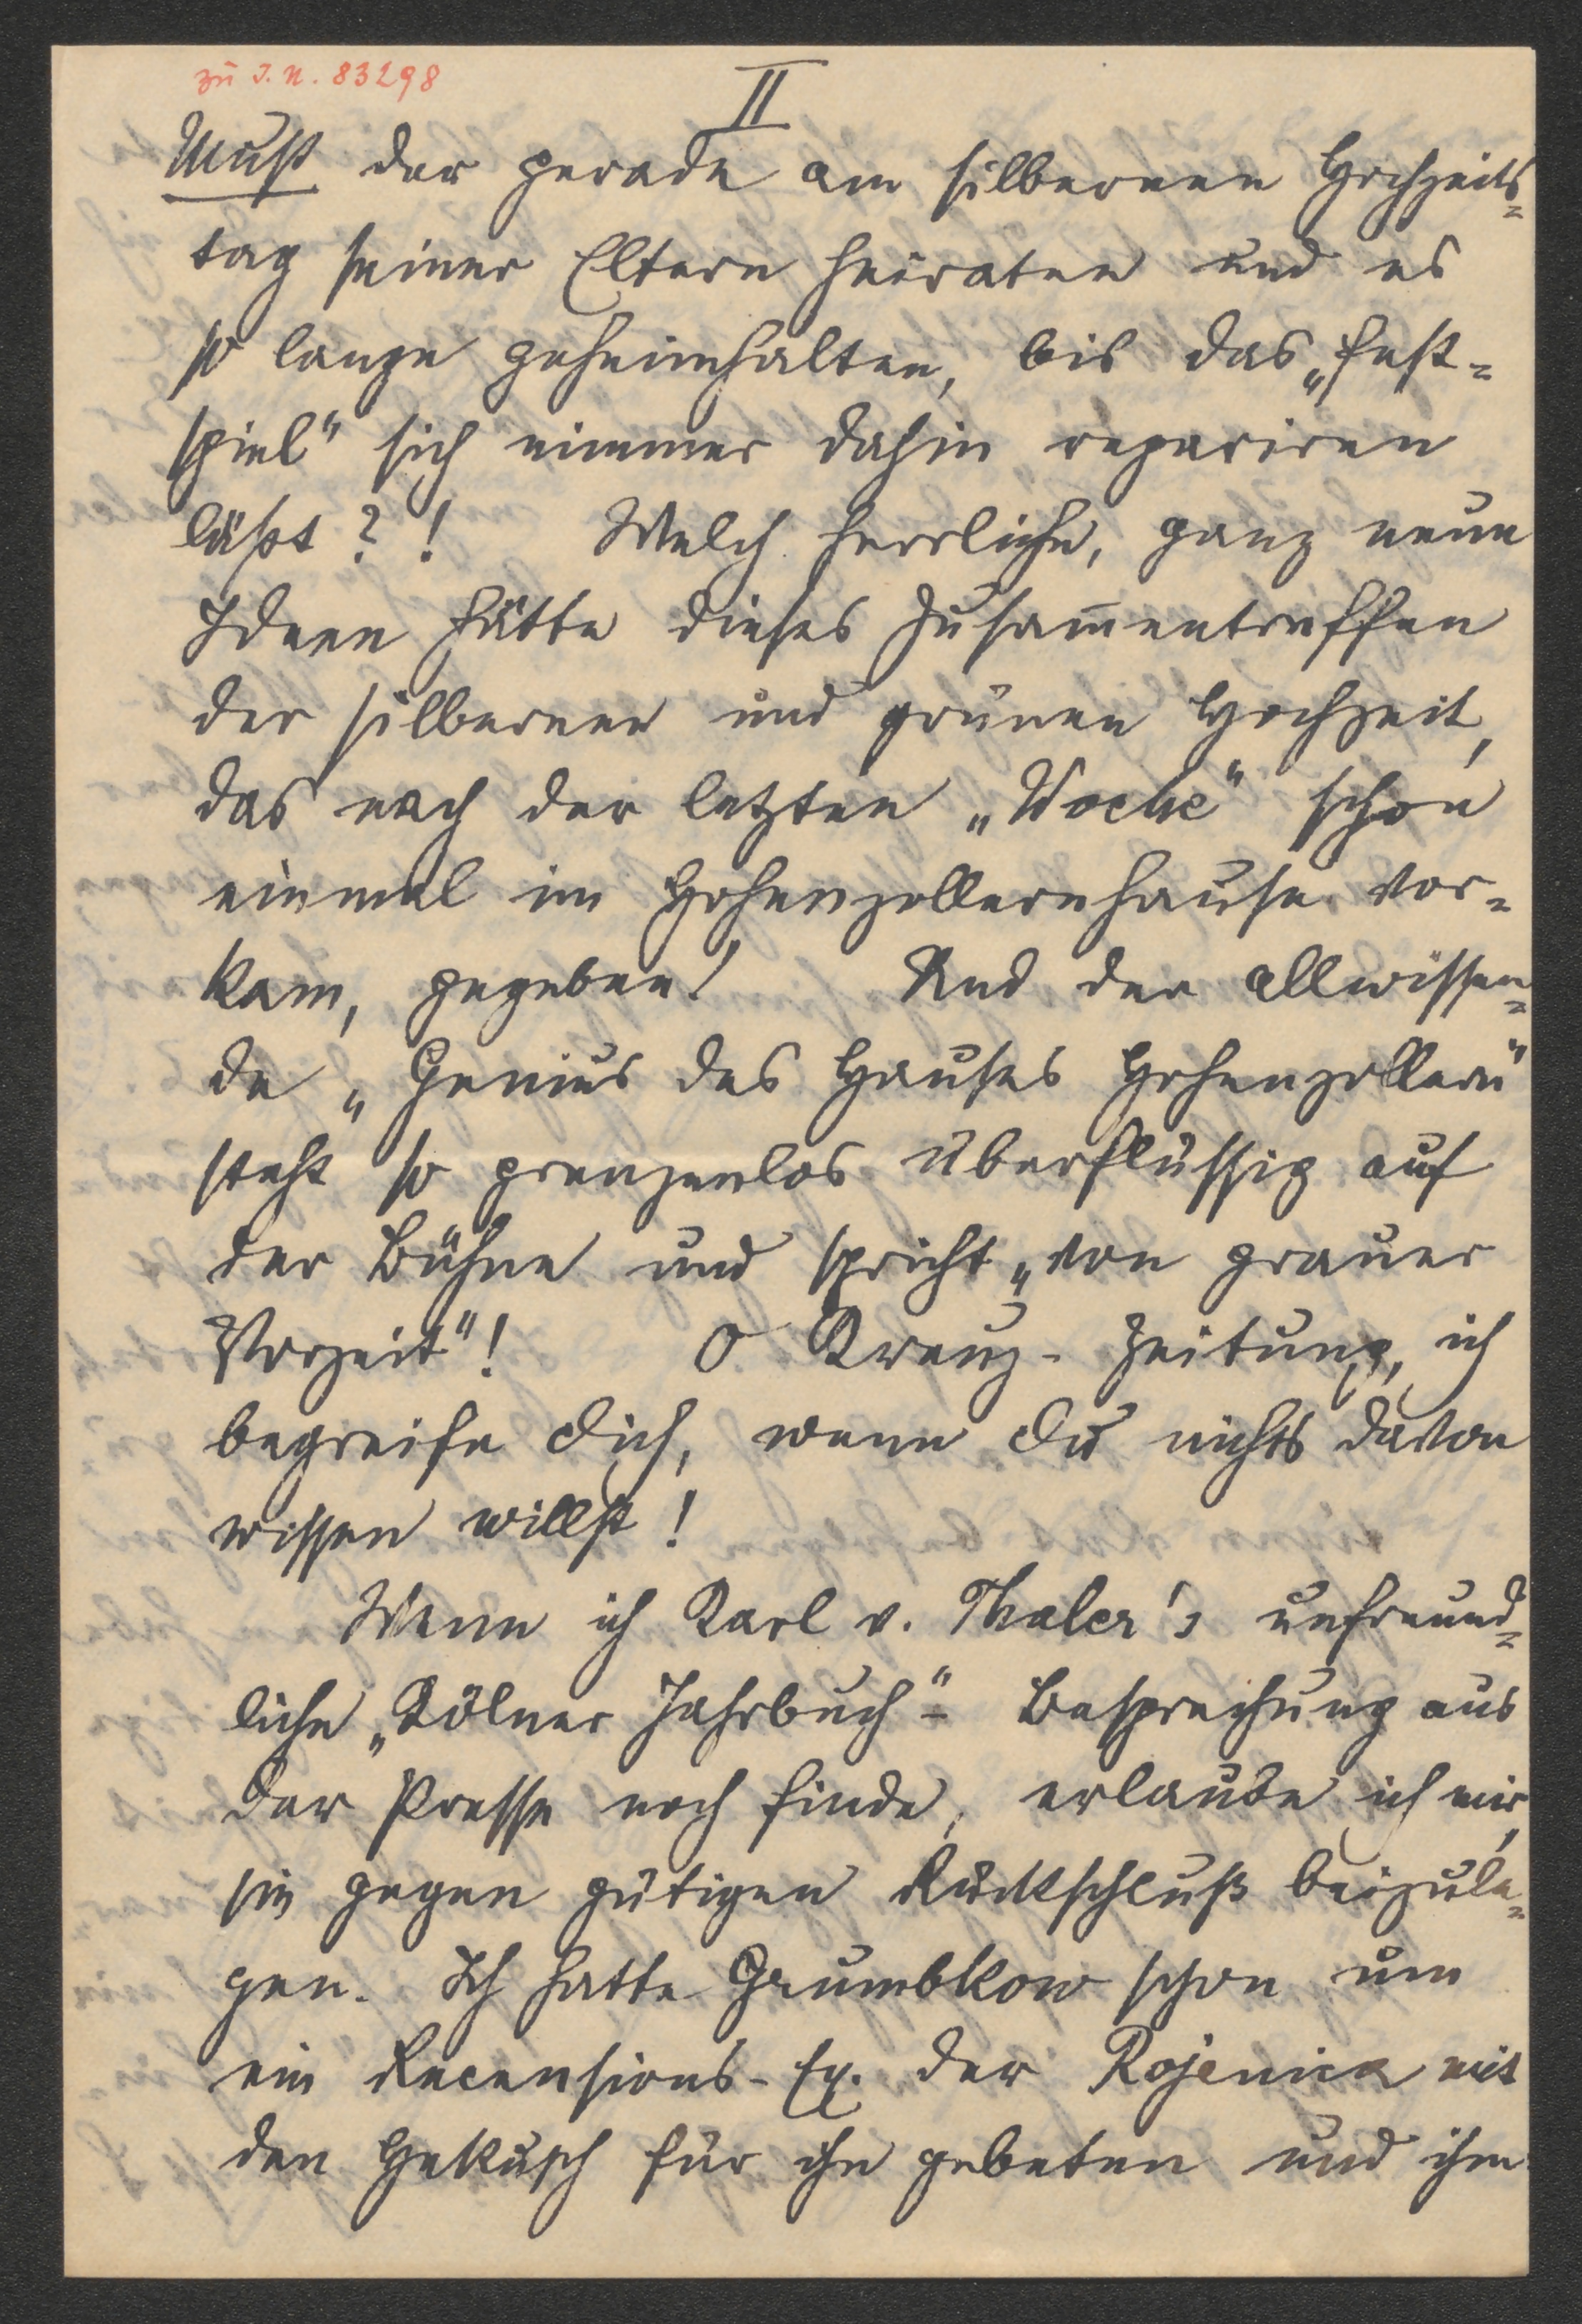 zu I. N. 83298
II
Muß der gerade am silbernen Hochzeits=
tag seiner Eltern heiraten und es
so lange geheimhalten, bis das „Fest=
spiel“ sich nimmer dahin repariren
läßt?! Welch herrliche, ganz neue
Ideen hätte dieses Zusam̅entreffen
der silbernen und grünen Hochzeit,
das nach der letzten „Woche“ schon
einmal im Hohenzollernhause vor=
kam, gegeben! Und der allwissen=
de „Genius des Hauses Hohenzollern“
steht so grenzenlos überflüssig auf
der Bühne und spricht „von grauer
Vorzeit“! O Kreuz-Zeitung, ich
begreife dich, wenn du nichts davon
wissen willst!
Wenn ich Karl v. Thaler's unfreund=
liche „Kölner Jahrbuch“-Besprechung aus
der Presse noch finde, erlaube ich mir,
sie gegen gütigen Rückschluß beizule=
gen. Ich hatte Grumbkow schon um
ein Recensions-Ex. der Rojenica mit
den für ihn gebeten und ihm